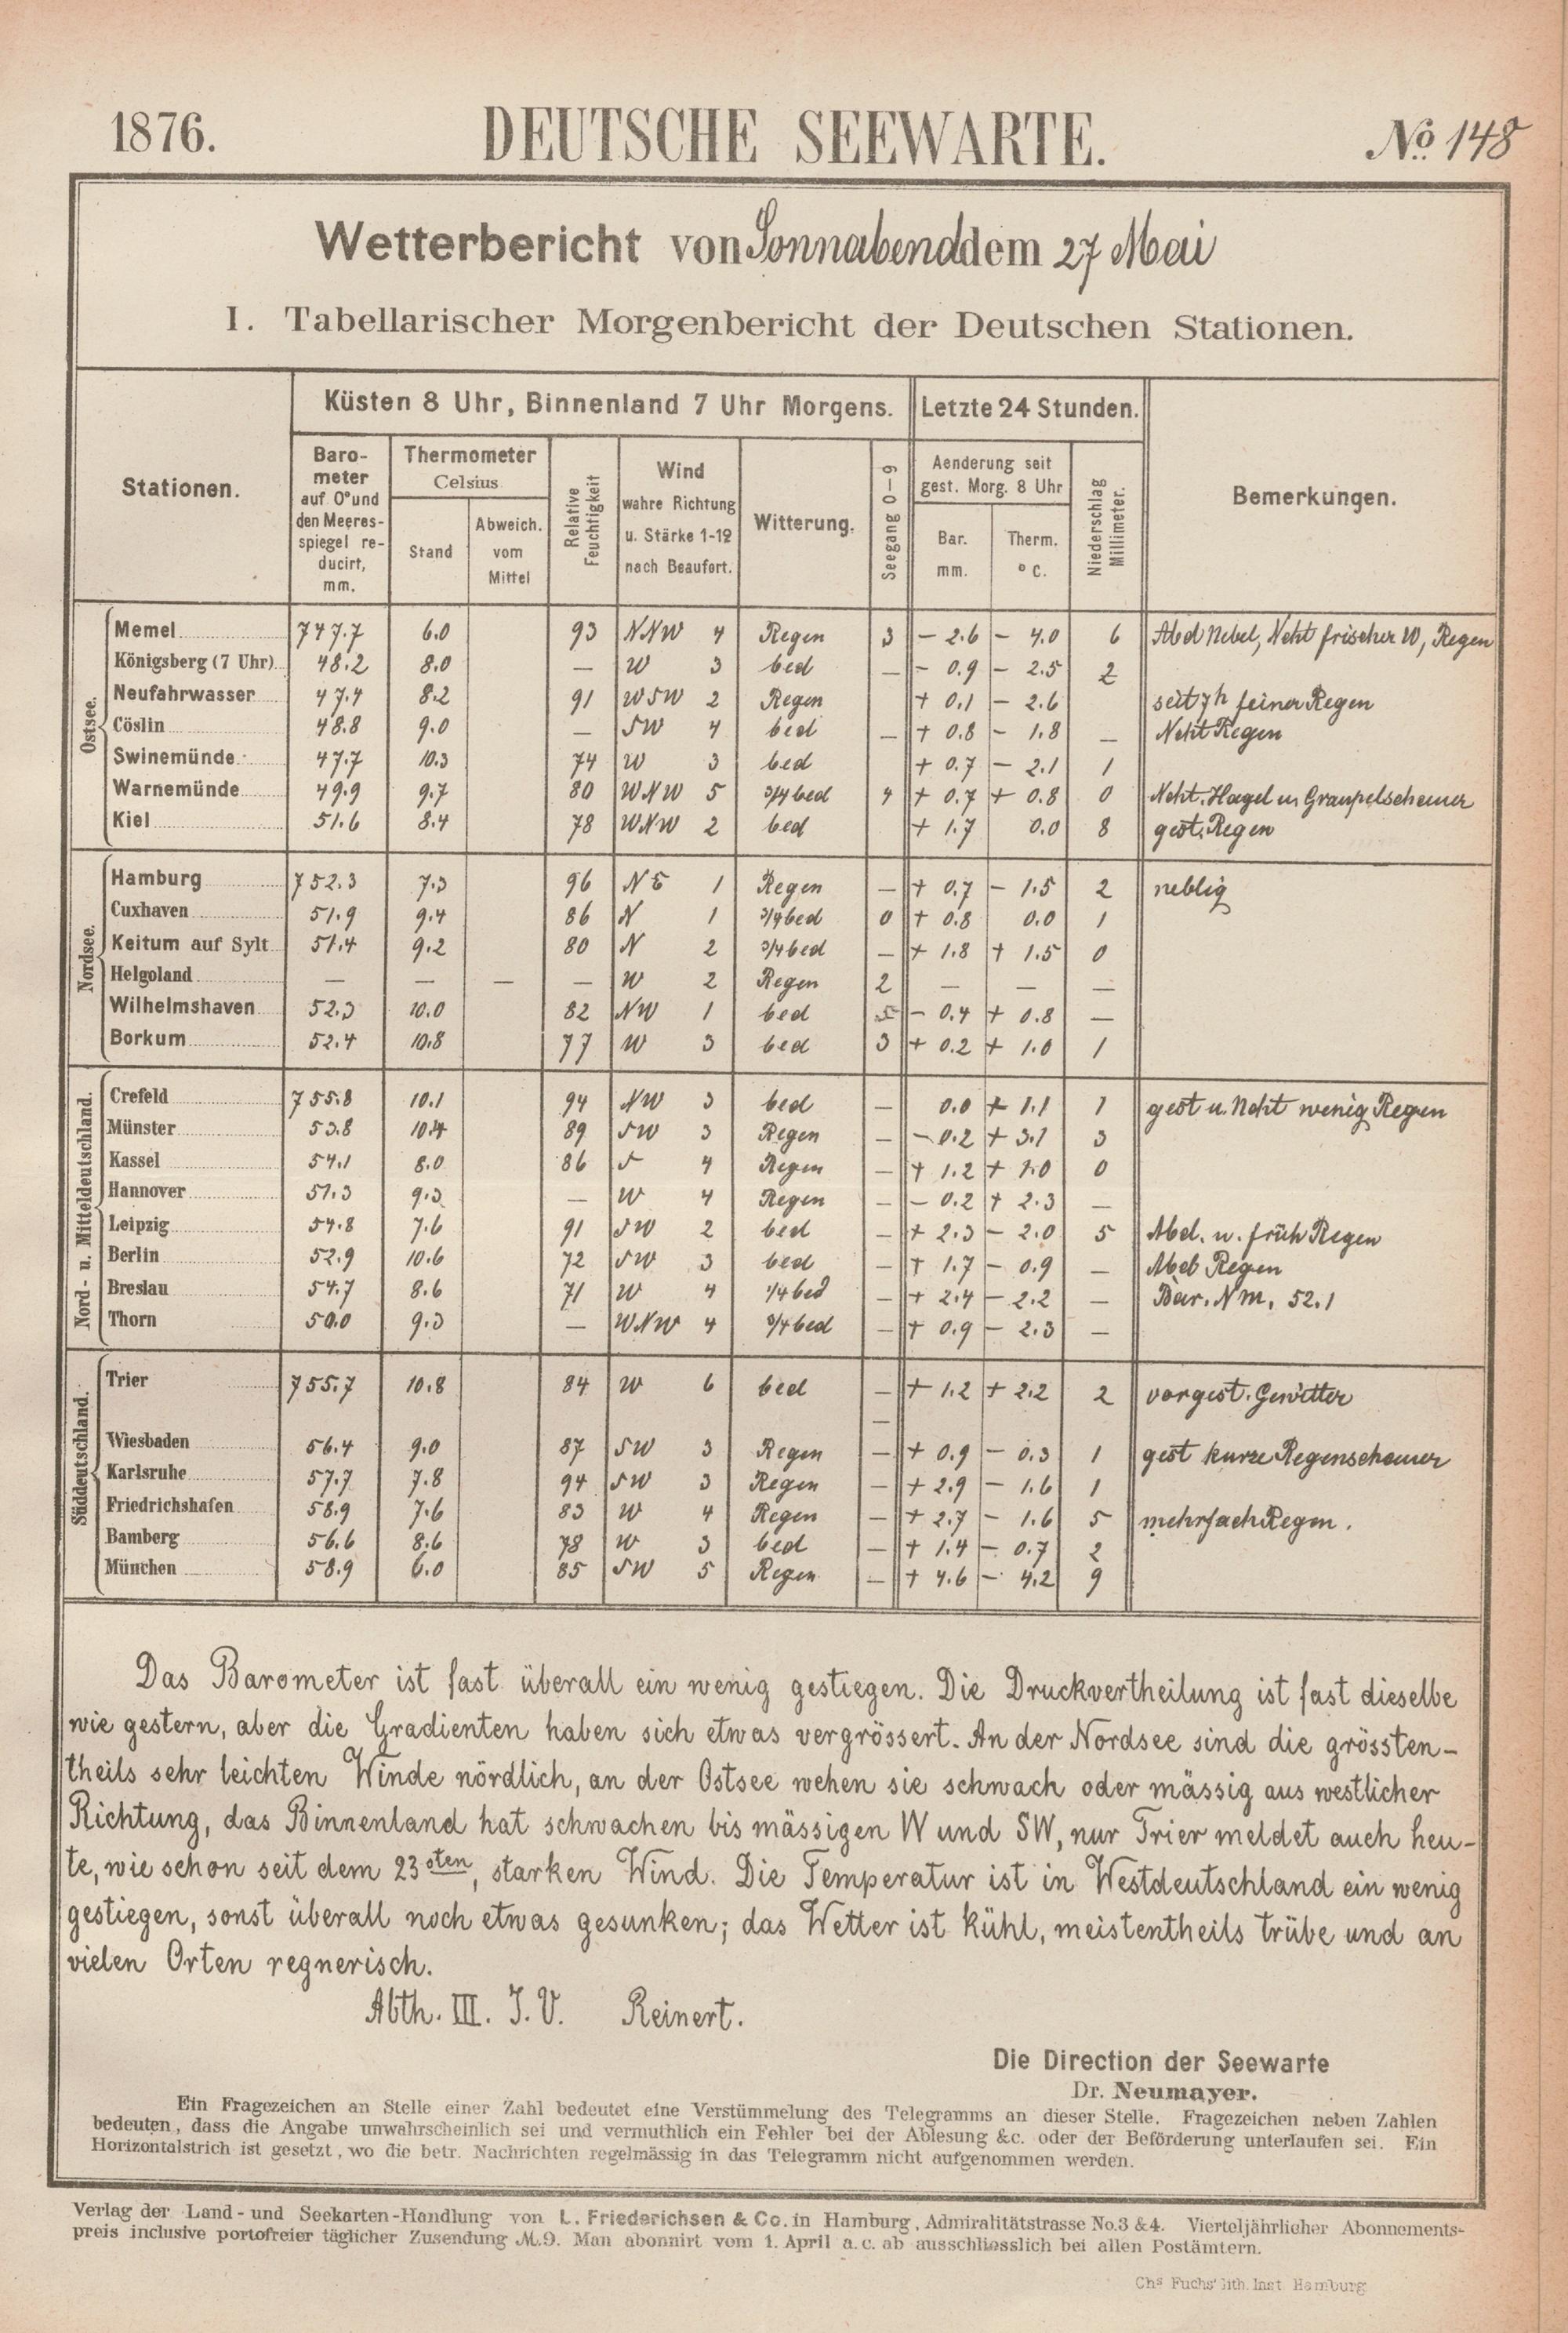 1876. DEUTSCHE SEEWARTE. No. 148
Wetterbericht von Sonnabend dem 27 Mai
I. Tabellarischer Morgenbericht der Deutschen Stationen.
Stationen. Küsten 8 Uhr, Binnenland 7 Uhr Morgens. Letzte 24 Stunden. Bemerkungen.
Barometer auf 0° und den Meeresspiegel reducirt, mm. Thermometer Celsius Stand Abweich. vom Mittel Relative Feuchtigkeit Wind wahre Richtung u. Stärke 1-12 nach Beaufort. Witterung. Seegang 0-9 Aenderung seit gest. Morg. 8 Uhr Bar. mm. Therm. °C. Niederschlag Millimeter.
Ostsee.
Memel 747.7 6.0 93 NNW 4 Regen 3 - 2.6 - 4.0 6 Abd Nebel, Ncht frischer W, Regen
Königsberg (7 Uhr) 48.2 8.0 — W 3 bed — - 0.9 - 2.5 2
Neufahrwasser 47.4 8.2 91 WSW 2 Regen + 0.1 - 2.6 seit 7h feiner Regen
Cöslin 48.8 9.0 — SW 4 bed — + 0.8 - 1.8 — Ncht Regen
Swinemünde 47.7 10.3 74 W 3 bed + 0.7 - 2.1 1
Warnemünde 49.9 9.7 80 WNW 5 3/4 bed 4 + 0.7 + 0.8 0 Ncht. Hagel u Graupelschauer
Kiel 51.6 8.4 78 WNW 2 bed + 1.7 0.0 8 gest. Regen
Nordsee.
Hamburg 752.3 7.3 96 NE 1 Regen — + 0.7 - 1.5 2 neblig
Cuxhaven 51.9 9.4 86 N 1 3/4 bed 0 + 0.8 0.0 1
Keitum auf Sylt 51.4 9.2 80 N 2 3/4 bed — + 1.8 + 1.5 0
Helgoland — — — — W 2 Regen 2 — — —
Wilhelmshaven 52.3 10.0 82 NW 1 bed 5 - 0.4 + 0.8 —
Borkum 52.4 10.8 77 W 3 bed 3 + 0.2 + 1.0 1
Nord- u. Mitteldeutschland.
Crefeld 755.8 10.1 94 NW 3 bed — 0.0 + 1.1 1 gest u. Ncht wenig Regen
Münster 53.8 10.4 89 SW 3 Regen — - 0.2 + 3.1 3
Kassel 54.1 8.0 86 S 4 Regen — + 1.2 + 1.0 0
Hannover 51.3 9.3 — W 4 Regen — - 0.2 + 2.3 —
Leipzig 54.8 7.6 91 SW 2 bed — + 2.3 - 2.0 5 Abd. u. früh Regen
Berlin 52.9 10.6 72 SW 3 bed — + 1.7 - 0.9 — Abds Regen
Breslau 54.7 8.6 71 W 4 1/4 bed — + 2.4 - 2.2 — Bar. Nm. 52.1
Thorn 50.0 9.3 — WNW 4 3/4 bed — + 0.9 - 2.3 —
Süddeutschland.
Trier 755.7 10.8 84 W 6 bed — + 1.2 + 2.2 2 vorgest. Gewitter
—
Wiesbaden 56.4 9.0 87 SW 3 Regen — + 0.9 - 0.3 1 gest kurze Regenschauer
Karlsruhe 57.7 7.8 94 SW 3 Regen — + 2.9 - 1.6 1
Friedrichshafen 58.9 7.6 83 W 4 Regen — + 2.7 - 1.6 5 mehrfach Regen.
Bamberg 56.6 8.6 78 W 3 bed — + 1.4 - 0.7 2
München 58.9 6.0 85 SW 5 Regen — + 4.6 - 4.2 9
Das Barometer ist fast überall ein wenig gestiegen. Die Druckvertheilung ist fast dieselbe
wie gestern, aber die Gradienten haben sich etwas vergrössert. An der Nordsee sind die grössten-
theils sehr leichten Winde nördlich, an der Ostsee wehen sie schwach oder mässig aus westlicher
Richtung, das Binnenland hat schwachen bis mässigen W und SW, nur Trier meldet auch heu-
te, wie schon seit dem 23sten, starken Wind. Die Temperatur ist in Westdeutschland ein wenig
gestiegen, sonst überall noch etwas gesunken; das Wetter ist kühl, meistentheils trübe und an
vielen Orten regnerisch.
Abth. III. I.V. Reinert.
Die Direction der Seewarte
Dr. Neumayer.
Ein Fragezeichen an Stelle einer Zahl bedeutet eine Verstümmelung des Telegramms an dieser Stelle. Fragezeichen neben Zahlen
bedeuten, dass die Angabe unwahrscheinlich sei und vermuthlich ein Fehler bei der Ablesung &c. oder der Beförderung unterlaufen sei. Ein
Horizontalstrich ist gesetzt, wo die betr. Nachrichten regelmässig in das Telegramm nicht aufgenommen werden.
Verlag der Land- und Seekarten-Handlung von L. Friederichsen & Co. in Hamburg, Admiralitätstrasse No. 3 & 4. Vierteljährlicher Abonnements-
preis inclusive portofreier täglicher Zusendung M. 9. Man abonnirt vom 1. April a.c. ab ausschliesslich bei allen Postämtern.
Chs Fuchs' lith. Inst. Hamburg